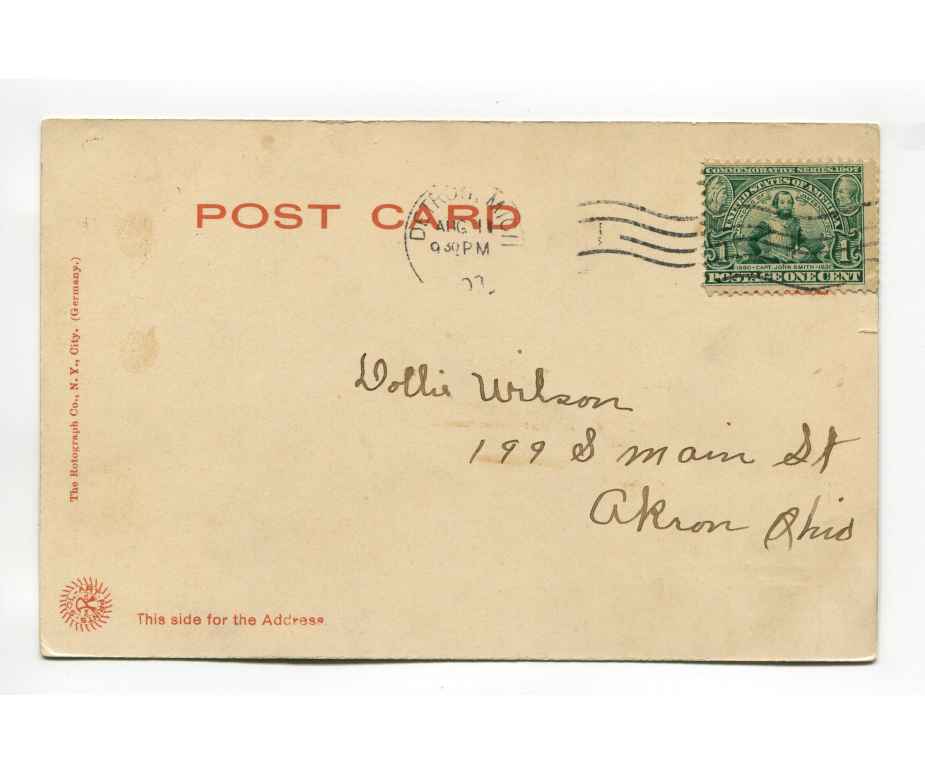 COMMEMORATIVE SERIES, 1907
UNITED STATES OF AMERICA
1580 · CAPT. JOHN SMITH · 1631
1 1
POSTAGE ONE CENT
POST CARD
DETROIT, MICH
AUG 11
9 30 PM
07
The Rotograph Co., N. Y., City. (Germany.)
Dollie Wilson
199 S main St
Akron Ohio
This side for the Address